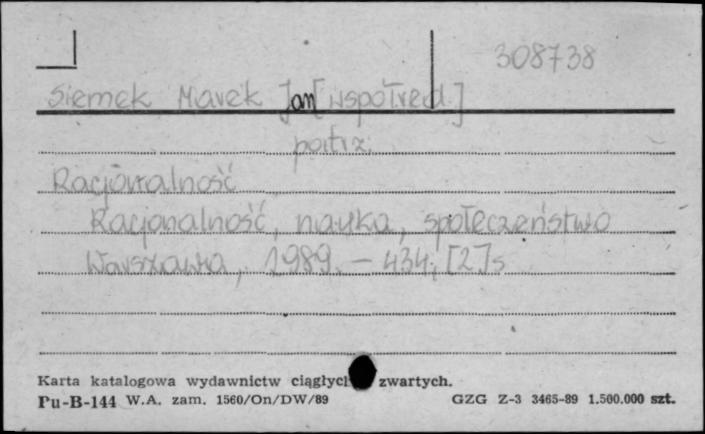 308738
Siemek Marek Jan [współred.]
patrz
Racjonalność
Racjonalność, nauka, społeczeństwo
Warszawa, 1989. – 434, [2] s
Karta katalogowa wydawnictw ciągłych zwartych.
Pu-B-144 W.A. zam. 1560/On/DW/89 GZG Z-3 3465-89 1.500.000 szt.